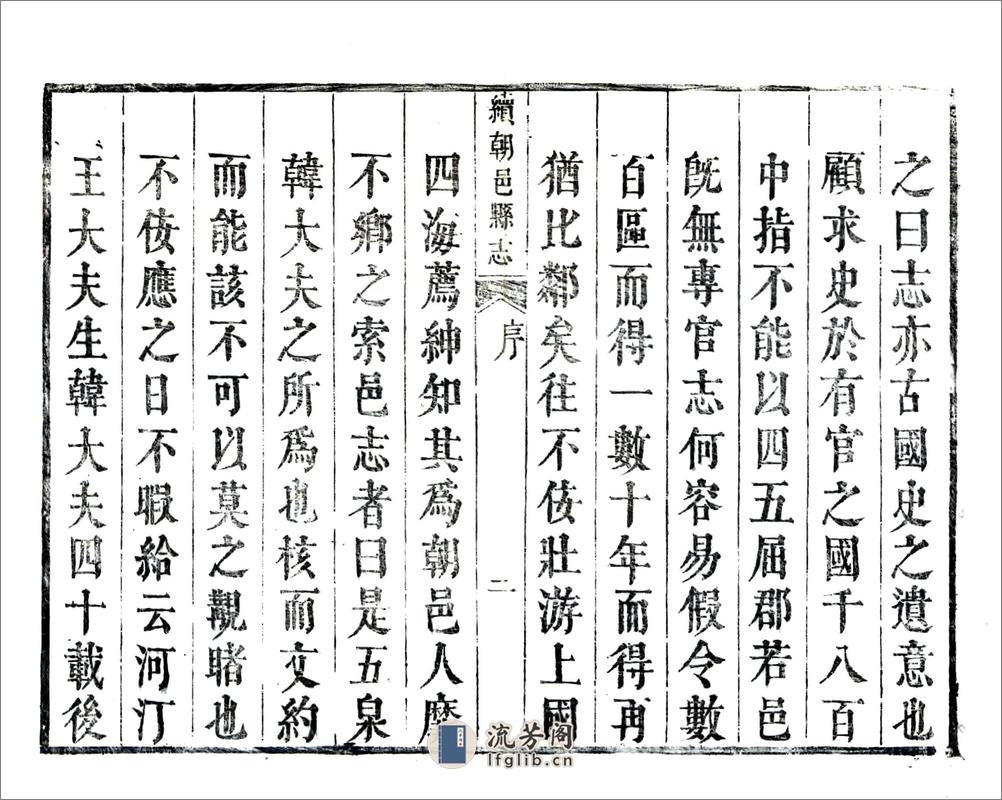 之曰志亦古國史之遺意也
顧求史於有官之國千八百
中指不能以四五屈郡若邑
旣無專官志何容易假令數
百區而得一數十年而得再
猶比鄰矣往不佞壯游上國
續朝邑縣志 序 二
四海薦紳知其爲朝邑人靡
不鄉之索邑志者曰是五泉
韓大夫之所爲也核而文約
而能該不可以莫之覯睹也
不佞應之日不暇給云河汀
王大夫生韓大夫四十載後
流芳阁
lfglib.cn